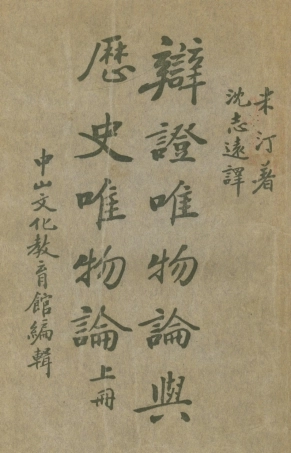 米汀著
沈志遠譯
辯證唯物論與
歷史唯物論上冊
中山文化教育館編輯